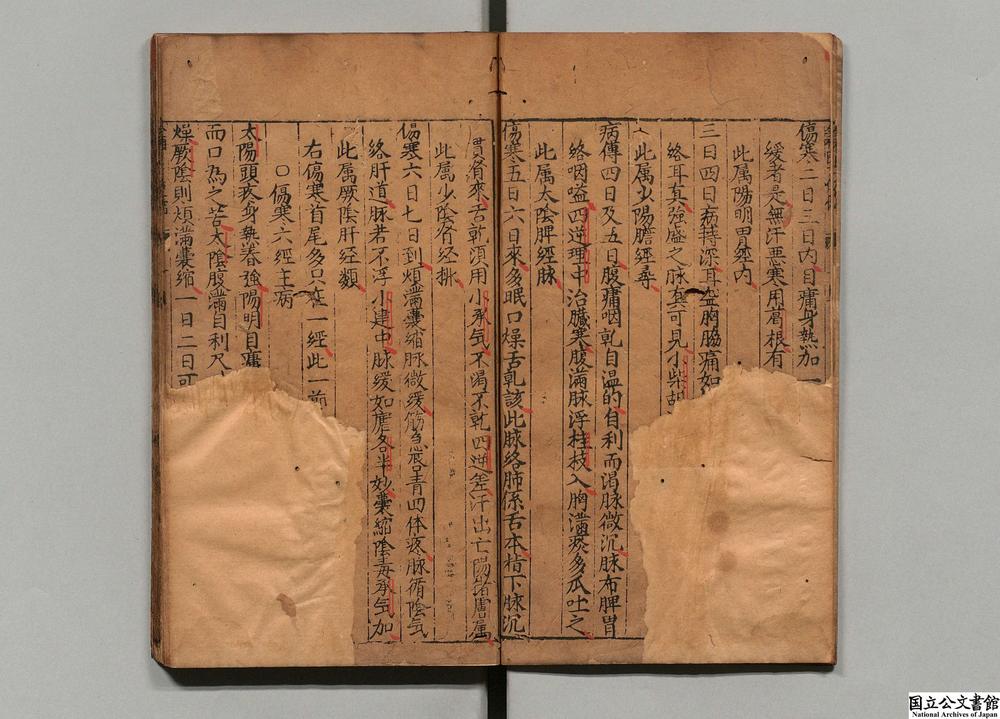 傷寒二日三日内目痛身熱加
緩者是無汗悪寒用葛根有
此属陽明胃經内
三日四日病轉深耳聾胸脇痛如
絡耳真強盛之脉其可見小柴胡
此属少陽膽經尋
病傳四日及五日腹痛咽乾自温的自利而渇脉微沉脉布脾胃
絡咽嗌四逆理中治臓寒腹滿脉浮桂枝入胸滿痰多瓜吐之
此属太陰脾經脉
傷寒五日六日來多眠口燥舌乾該此脉絡肺係舌本指下脉沉
貫腎來舌乾須用小承气不渇不乾四逆差汗出亡陽
此属少陰腎經排
傷寒六日七日到煩滿囊縮脉微緩筋急唇青四体疼脉循陰气
絡肝道脉若不浮小建中脉緩如瘧各半妙囊縮陰毒承气加
此属厥陰肝經類
右傷寒首尾多只在一經此一前
○傷寒六經主病
太陽頭疼身熱脊強陽明目痛
而口為之苦太陰腹滿自利尺
燥厥陰則煩滿囊縮一日二日可
国立公文書館
National Archives of Japan